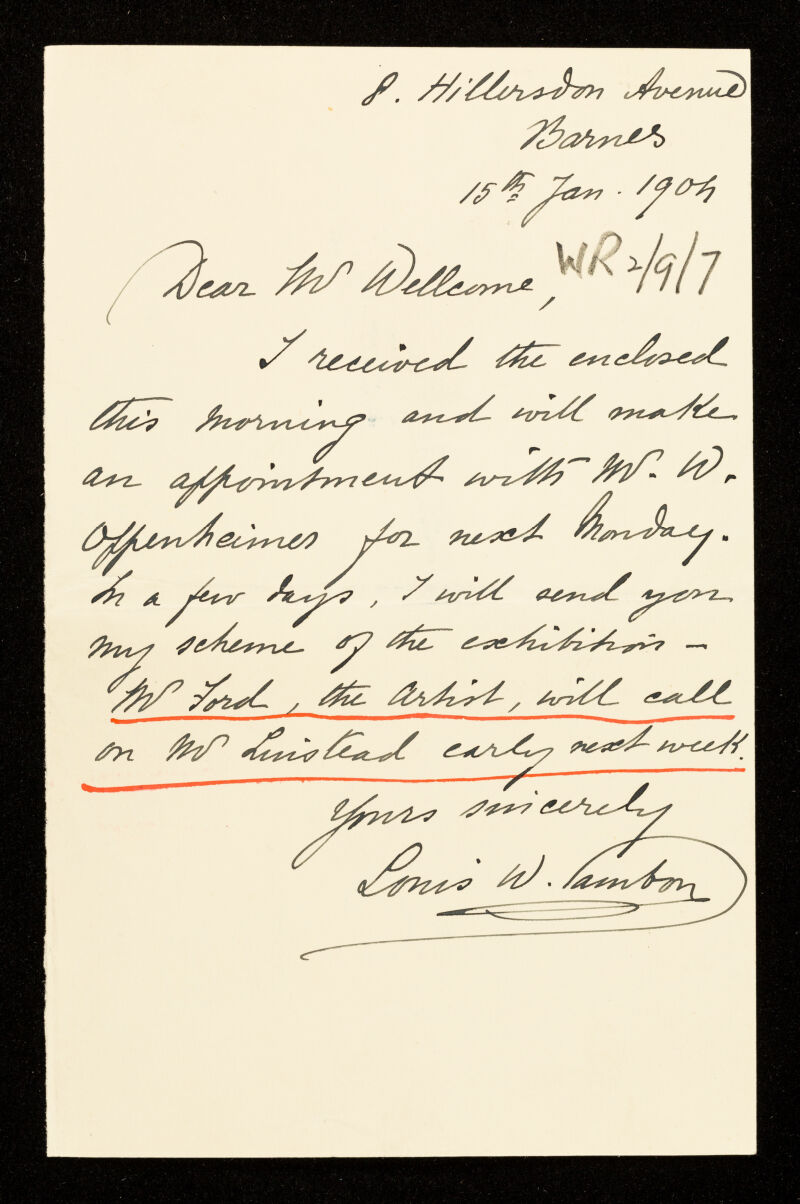 8. Hillersdon Avenue
Barnes
15th Jan. 1904
WR 2/9/7
Dear Mr Wellcome,
I received the enclosed
this morning and will make
an appointment with Mr. W.
Oppenheimer for next Monday.
In a few days, I will send you
my scheme of the exhibition -
Mr Ford, the Artist, will call
on Mr Linstead early next week.
Yours sincerely
Louis W. Sambon